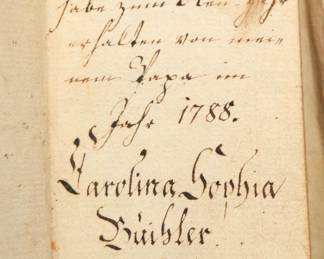 habe zum Neu-Jahr
erhalten von mei=
nem Papa im
Jahr 1788.
Carolina Sophia
Büihler.